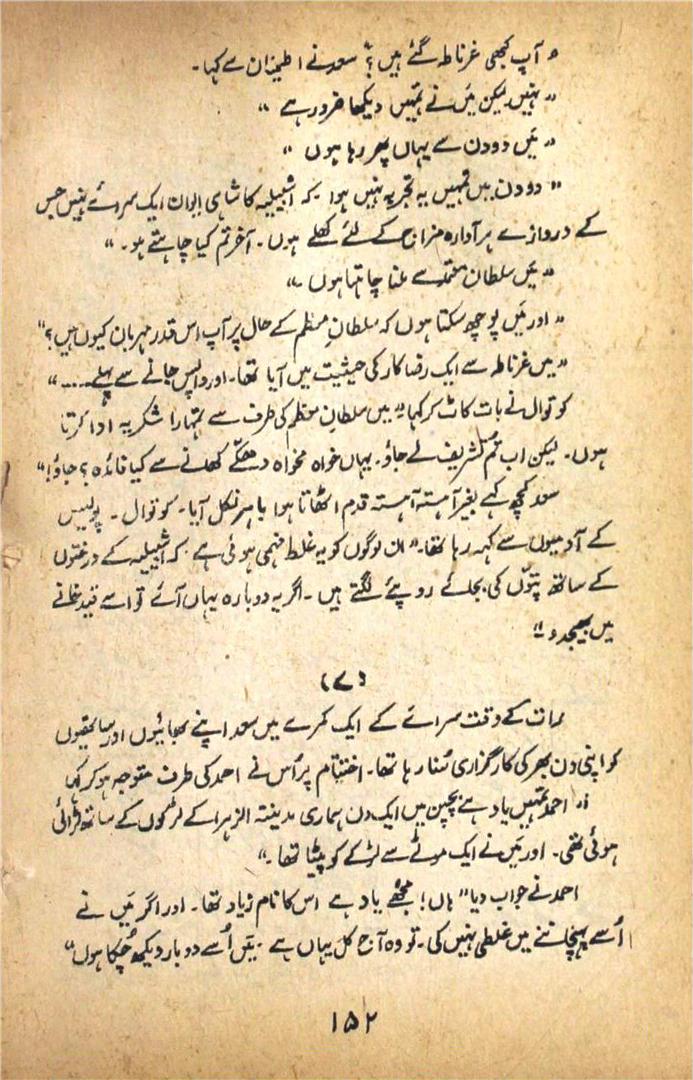 "آپ کبھی غرناطہ گئے ہیں؟" سعد نے اطمینان سے کہا۔
"نہیں لیکن میں نے تمہیں دیکھا ضرور ہے"
"میں دو دن سے یہاں پھر رہا ہوں"
"دو دن میں تمہیں یہ تجربہ نہیں ہوا۔ کہ اشبیلیہ کا شاہی ایوان ایک سرائے نہیں جس
کے دروازے ہر آوارہ مزاج کے لئے کھلے ہوں۔ آخر تم کیا چاہتے ہو۔"
"میں سلطان معتمد سے ملنا چاہتا ہوں۔"
"اور میں پوچھ سکتا ہوں کہ سلطانِ معظم کے حال پر آپ اس قدر مہربان کیوں ہیں؟"
"میں غرناطہ سے ایک رضاکار کی حیثیت میں آیا تھا۔ اور واپس جانے سے پہلے ....."
کوتوال نے بات کاٹ کر کہا "میں سلطانِ معظم کی طرف سے تمہارا شکریہ ادا کرتا
ہوں۔ لیکن اب تم تشریف لے جاؤ۔ یہاں خواہ مخواہ دھکے کھانے سے کیا فائدہ؟ جاؤ!"
سعد کچھ کہے بغیر آہستہ آہستہ قدم اٹھاتا ہوا باہر نکل آیا۔ کوتوال۔ پولیس
کے آدمیوں سے کہہ رہا تھا۔ "ان لوگوں کو یہ غلط فہمی ہوئی ہے کہ اشبیلیہ کے درختوں
کے ساتھ پتوّں کی بجائے روپے لگتے ہیں۔ اگر یہ دوبارہ یہاں آئے تو اسے قید خانے
میں بھیجدو"
(۷)
رات کے وقت سرائے کے ایک کمرے میں سعد اپنے بھائیوں اور ساتھیوں
کو اپنی دن بھر کی کارگزاری سُنا رہا تھا۔ اختتام پر اُس نے احمد کی طرف متوجہ ہو کر کہا
"احمد تمہیں یاد ہے بچپن میں ایک دن ہماری مدینتہ الزہرا کے لڑکوں کے ساتھ لڑائی
ہوئی تھی۔ اور میں نے ایک موٹے سے لڑکے کو پیٹا تھا۔"
احمد نے جواب دیا "ہاں! مجھے یاد ہے اس کا نام زیاد تھا۔ اور اگر میں نے
اُسے پہچاننے میں غلطی نہیں کی۔ تو وہ آج کل یہاں ہے۔ میں اُسے دوبار دیکھ چُکا ہوں"
۱۵۲